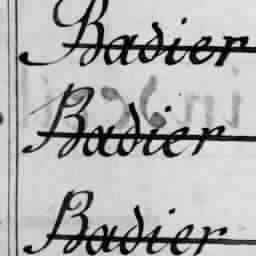 Badier
Badier
Badier